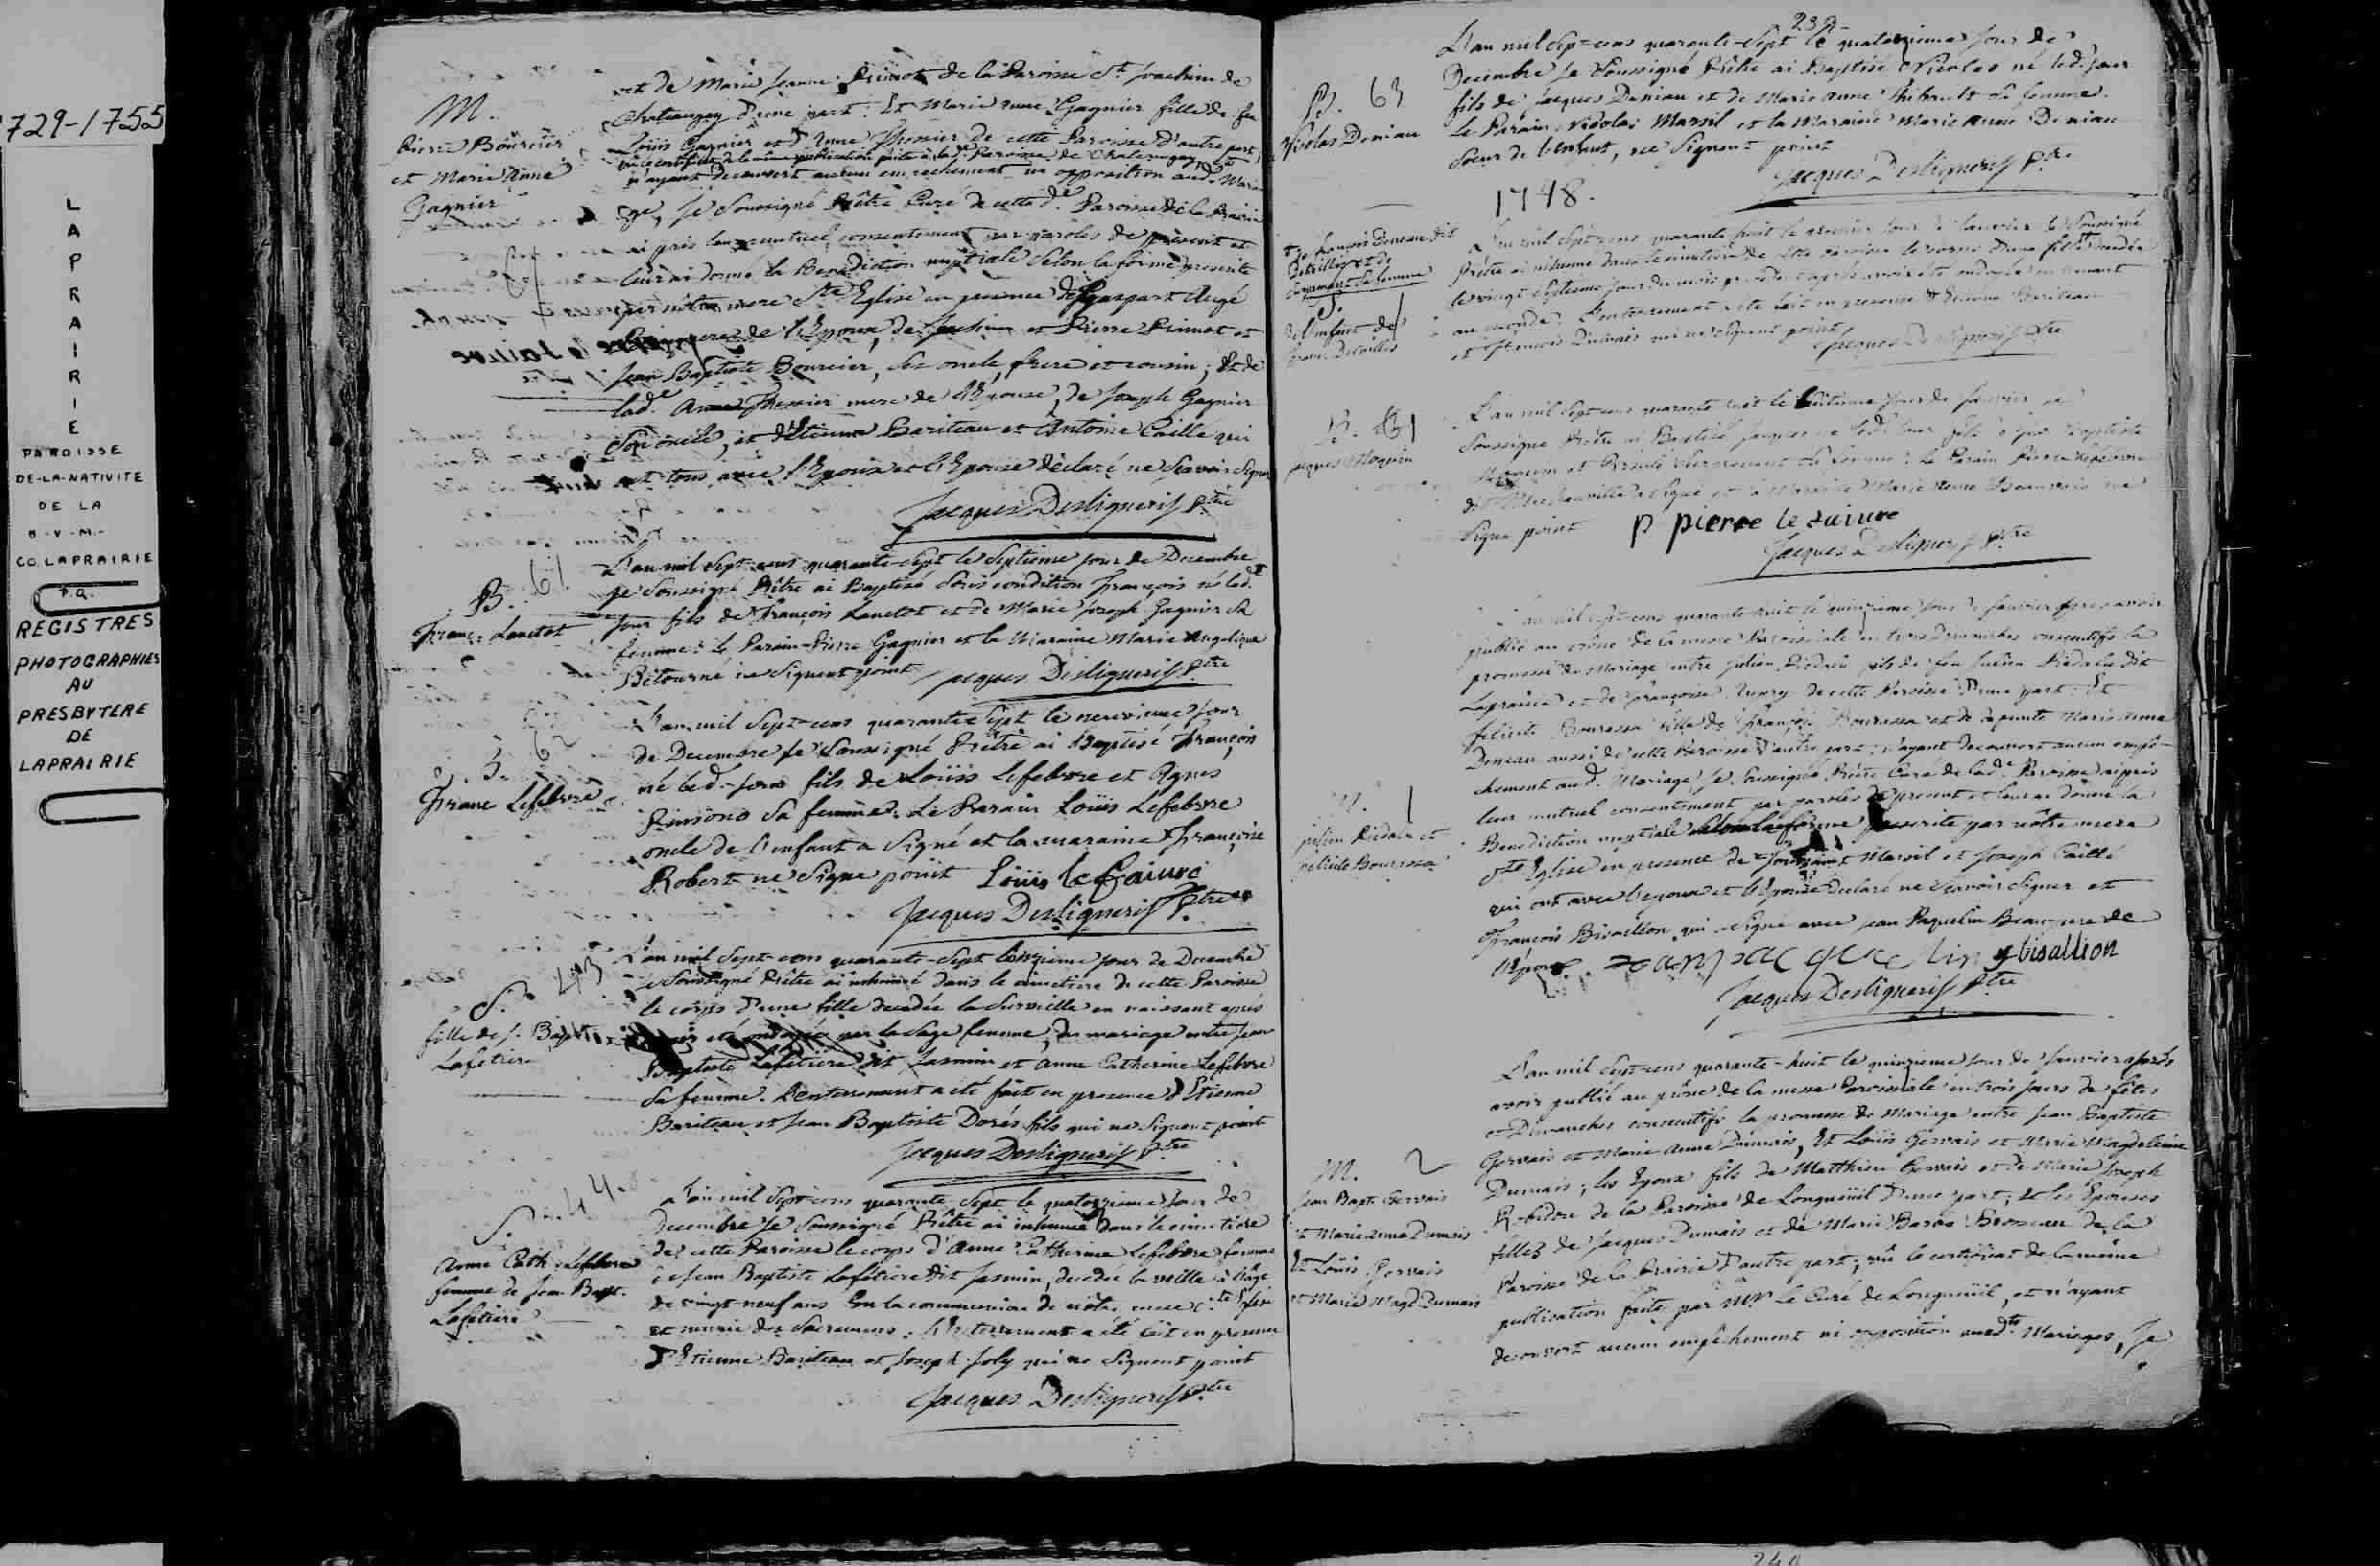 729-1755
LAPRAIRIE
PAROISSE
DE-LA-NATIVITE
DE LA
B-V-M-
CO. LAPRAIRIE
P.Q.
REGISTRES
PHOTOGRAPHIES
AU
PRESBYTERE
DE
LAPRAIRIE
M.
Pierre Bourcier
et Marie Anne
Gagnier
et de Marie Jeanne Primot de la Paroisse St. Joachim de
Chateaugay d'une part. Et Marie Anne Gagnier fille de feu
Louis Gagnier et d'Anne de cette Paroisse d'autre part,
vu le certificat de la même publication faite à lade. Paroisse de Chateaugay et
n'ayant decouvert aucun empechement ni opposition aud. Maria
ge, Je Soussigné Prêtre Curé de cette de. Paroisse de la Prairie
ai pris leur mutuel consentement par paroles de present et
leur ai donné la Benediction nuptiale Selon la forme prescrite
par nôtre mere Ste Eglise en presence de Gaspart Augé
de l'Epoux, de et Pierre Primot et
Jean Baptiste Bourcier, Ses oncle, frere et cousin; Et de
lade. Anne mere de l'Epouse, de Joseph Gagnier
Son oncle, et d'Etienne Bariteau et Antoine Caillé qui
ont tous avec l'Epoux et l'Epouse declaré ne Scavoir Signer
Jacques Desligneris Ptre
B. 61
Franc. Lanctot
L'an mil Sept-cens quarante-Sept le Septieme jour de Decembre
je Soussigné Prêtre ai Baptisé Sous condition François né led.
jour fils de François Lanctot et de Marie Joseph Gagnier Sa
femme. Le Parain Pierre Gagnier et la Maraine Marie Angelique
Bétourné ne Signent point Jacques Desligneris Ptre
B. 62
Franc Lefebvre
L'an mil Sept-cens quarante Sept le neuvieme jour
de Decembre je Soussigné Prêtre ai Baptisé François
né led. jour fils de Loüis Lefebvre et Agnes
Pinsono Sa femme. Le Parain Loüis Lefebvre
oncle de l'enfant a Signé et la maraine Françoise
Robert ne Signe point Loüis lefaivre
Jacques Desligneris Ptre
S. 43
fille de J. Bapt.
Lafetiere
L'an mil Sept-cens quarante-Sept l'onzieme jour de Decembre
je Soussigné Prêtre ai inhumé dans le cimetiere de cette Paroisse
le corps d'une fille decedée la Surveille en naissant après
avoir été ondoyée par la Sage femme, du mariage entre Jean
Baptiste Lafetiere dit Jasmin et Anne Catherine Lefebvre
Sa femme. L'enterrement a été fait en presence d'Etienne
Bariteau et Jean Baptiste Dorés fils qui ne Signent point
Jacques Desligneris Ptre
S. 44
Anne Cath. Lefebvre
femme de Jean Bapt.
Lafetiere
L'an mil Sept-cens quarante Sept le quatorzieme jour de
Decembre Je Soussigné Prêtre ai inhumé dans le cimetiere
de cette Paroisse le corps d'Anne Catherine Lefebvre femme
de Jean Baptiste Lafétiere dit Jasmin, decedée la veille à l'âge
de vingt-neuf ans En la communion de nôtre mere Ste Eglise
et munie des Sacremens. L'Enterrement a été fait en presence
d'Etienne Bariteau et Joseph Joly qui ne Signent point
Jacques Desligneris Ptre
232
B. 63
Nicolas Deniau
L'an mil Sept-cens quarante-Sept le quatorzieme jour de
Decembre Je Soussigné Prêtre ai Baptisé Nicolas né led. jour
fils de Jacques Deniau et de Marie Anne Thibault Sa femme.
Le Parain Nicolas Marsil et la Maraine Marie Anne Deniau
Soeur de l'enfant, ne Signent point
Jacques Desligneris Ptre
1748.
François Deneau dit
Detaillis et de
sa femme
S. 1
de l'enfant de
franc. Detaillis
L'an mil Sept-cens quarante huit le premier jour de Janvier le Soussigné
Prêtre ai inhumé dans le cimetiere de cette Paroisse le corps d'une fille decedée
le vingt-Septieme jour du mois precedent après avoir été ondoyée en venant
au monde. L'enterrement a été fait en presence d'Etienne Bariteau
et François Dumais qui ne signent point Jacques Desligneris Ptre
B. 1
Jacques Moquin
L'an mil Sept-cens quarante huit le huitieme jour de Janvier je
Soussigné Prêtre ai Baptisé Jacques né led. jour fils de Jean Baptiste
Moquin et Sa femme. Le Parain Pierre Lefebvre
a Signé et la Maraine Marie Anne Beauvais ne
Signe point p pierre le faivre
Jacques Desligneris Ptre
M. 1
Julien Piedalu et
Felicité Bourassa
L'an mil Sept-cens quarante-huit le quinzieme jour de Janvier Après avoir
publié au prône de la messe Paroissiale en trois Dimanches consecutifs la
promesse de Mariage entre Julien Piedalu fils de feu Julien Piedalu dit
Laprairie et de Françoise de cette Paroisse d'une part. Et
Felicité Bourassa fille de François Bourassa et de defunte Marie Anne
Deneau aussi de cette Paroisse d'autre part; n'ayant decouvert aucun empê-
chement aud. Mariage, Je Soussigné Prêtre Curé de lade. Paroisse ai pris
leur mutuel consentement par paroles de present et leur ai donné la
Benediction nuptiale Selon la forme prescrite par nôtre mere
Ste Eglise en presence de Marsil et Joseph Caillé
qui ont avec l'epoux et l'Epouse declaré ne Scavoir Signer et
François Bisaillon qui a Signé avec Jean Paquelin Beau-pere de
l'Epoux. Jean pacquelin f bisallion
Jacques Desligneris Ptre
M. 2
Jean Bapt. Gervais
et Marie Anne Dumais
Et Loüis Gervais
et Marie Magd Dumais
L'an mil Sept-cens quarante-huit le quinzieme jour de Janvier après
avoir publié au prône de la messe Paroissiale en trois jours de fêtes
et Dimanches consecutifs la promesse de Mariage entre Jean Baptiste
Gervais et Marie Anne Dumais, Et Loüis Gervais et Marie Magdeleine
Dumais; les Epoux fils de Matthieu Gervais et de Marie Joseph
Robidou de la Paroisse de Longueüil d'une part; et les Epouses
filles de Jacques Dumais et de Marie Barbe Brosseau de la
Paroisse de la Prairie d'autre part; vû le certificat de la même
publication faite par Mr. le Curé de Longueüil, et n'ayant
decouvert aucun empêchement ni opposition auxdts. Mariages, Je
240